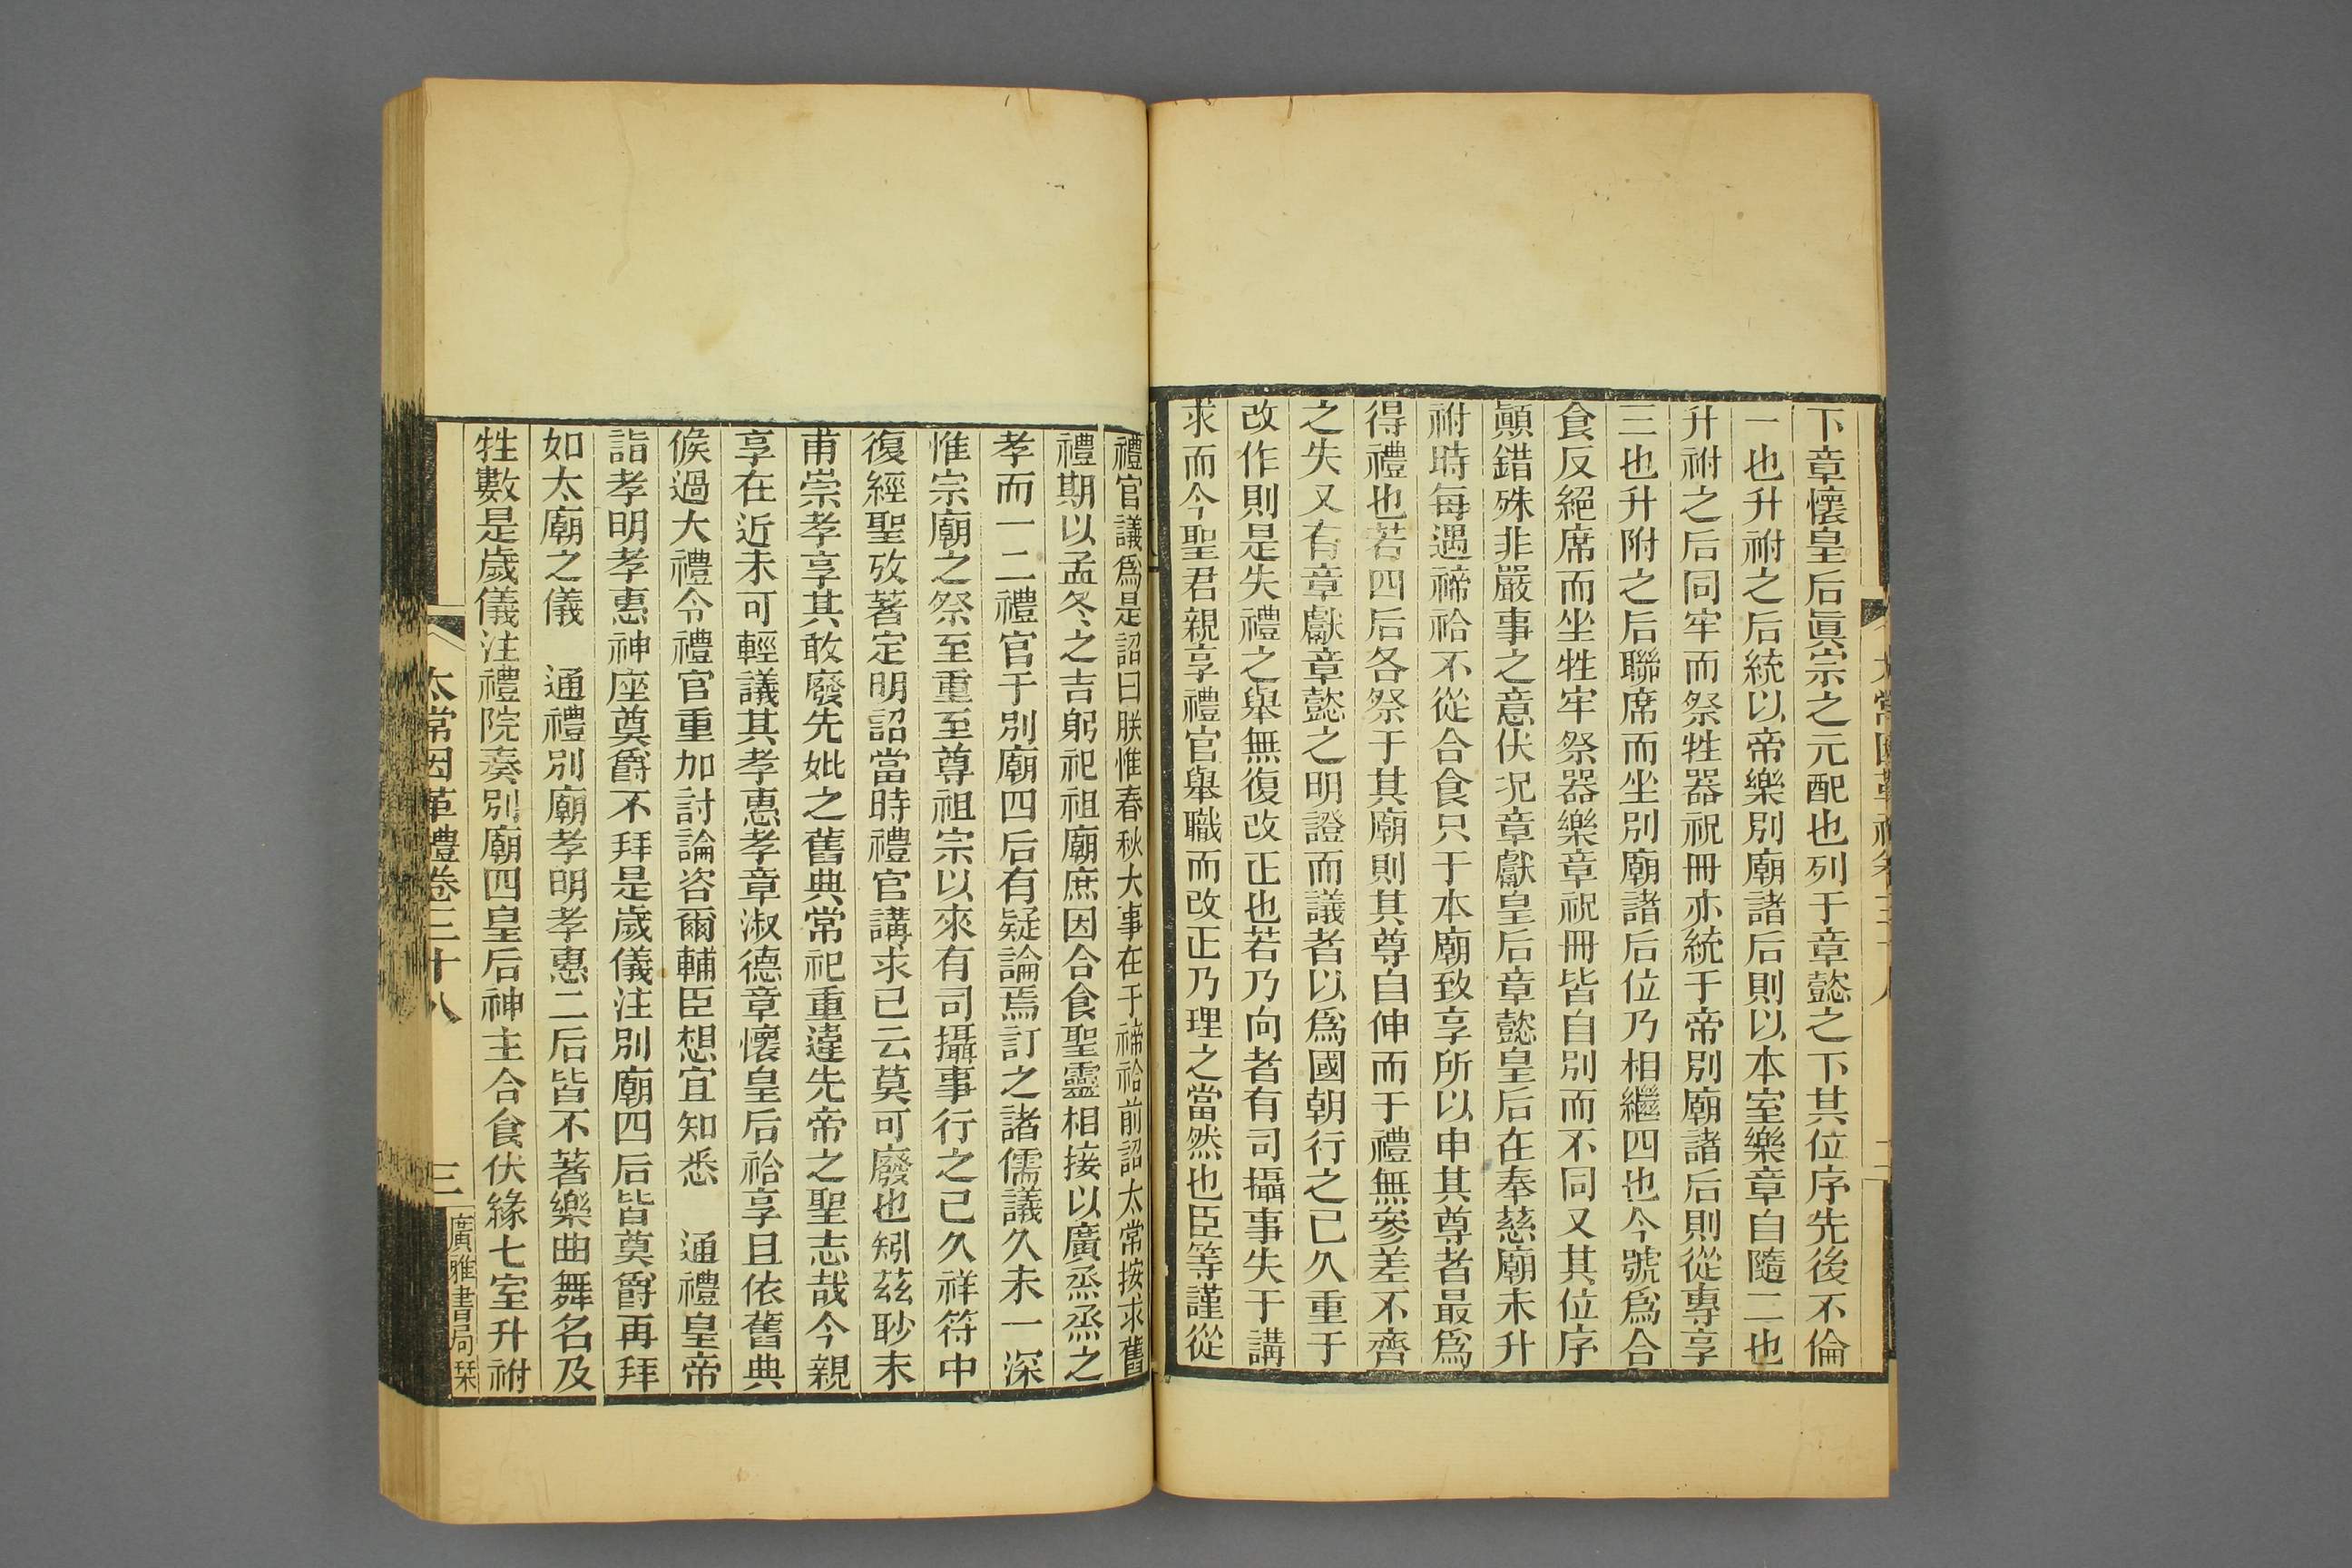 下章懷皇后眞宗之元配也列于章懿之下其位序先後不倫
一也升祔之后統以帝樂別廟諸后則以本室樂章自隨二也
升祔之后同牢而祭牲器祝冊亦統于帝別廟諸后則從專享
三也升附之后聯席而坐別廟諸后位乃相繼四也今號爲合
食反絕席而坐牲牢祭器樂章祝冊皆自別而不同又其位序
顚錯殊非嚴事之意伏況章獻皇后章懿皇后在奉慈廟未升
祔時每遇禘祫不從合食只于本廟致享所以申其尊者最爲
得禮也若四后各祭于其廟則其尊自伸而于禮無參差不齊
之失又有章獻章懿之明證而議者以爲國朝行之已久重于
改作則是失禮之舉無復改正也若乃向者有司攝事失于講
求而今聖君親享禮官舉職而改正乃理之當然也臣等謹從
禮官議爲是詔曰朕惟春秋大事在于禘祫前詔太常按求舊
禮期以孟冬之吉躬祀祖廟庶因合食聖靈相接以廣烝烝之
孝而一二禮官于別廟四后有疑論焉訂之諸儒議久未一深
惟宗廟之祭至重至尊祖宗以來有司攝事行之已久祥符中
復經聖攷著定明詔當時禮官講求已云莫可廢也矧茲眇末
甫崇孝享其敢廢先妣之舊典常祀重違先帝之聖志哉今親
享在近未可輕議其孝惠孝章淑德章懷皇后祫享且依舊典
候過大禮令禮官重加討論咨爾輔臣想宜知悉　通禮皇帝
詣孝明孝惠神座奠爵不拜是歲儀注別廟四后皆奠爵再拜
如太廟之儀　通禮別廟孝明孝惠二后皆不著樂曲舞名及
牲數是歲儀注禮院奏別廟四皇后神主合食伏緣七室升祔
太常因革禮卷三十八
三
廣雅書局栞